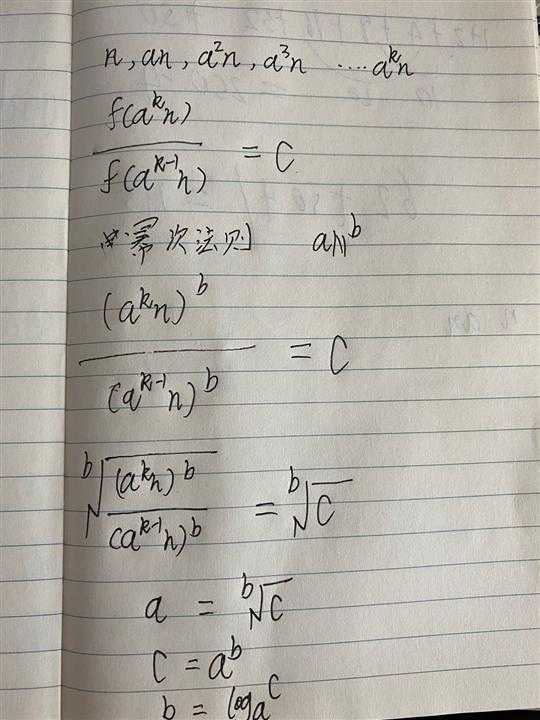 n, an, a²n, a³n ....aᵏn
f(aᵏn)
f(aᵏ⁻¹n)
= C
幂次法则 aNᵇ
(aᵏn)ᵇ
(aᵏ⁻¹n)ᵇ
= C
ᵇ√((aᵏn)ᵇ / (aᵏ⁻¹n)ᵇ) = ᵇ√C
a = ᵇ√C
C = aᵇ
b = logₐC